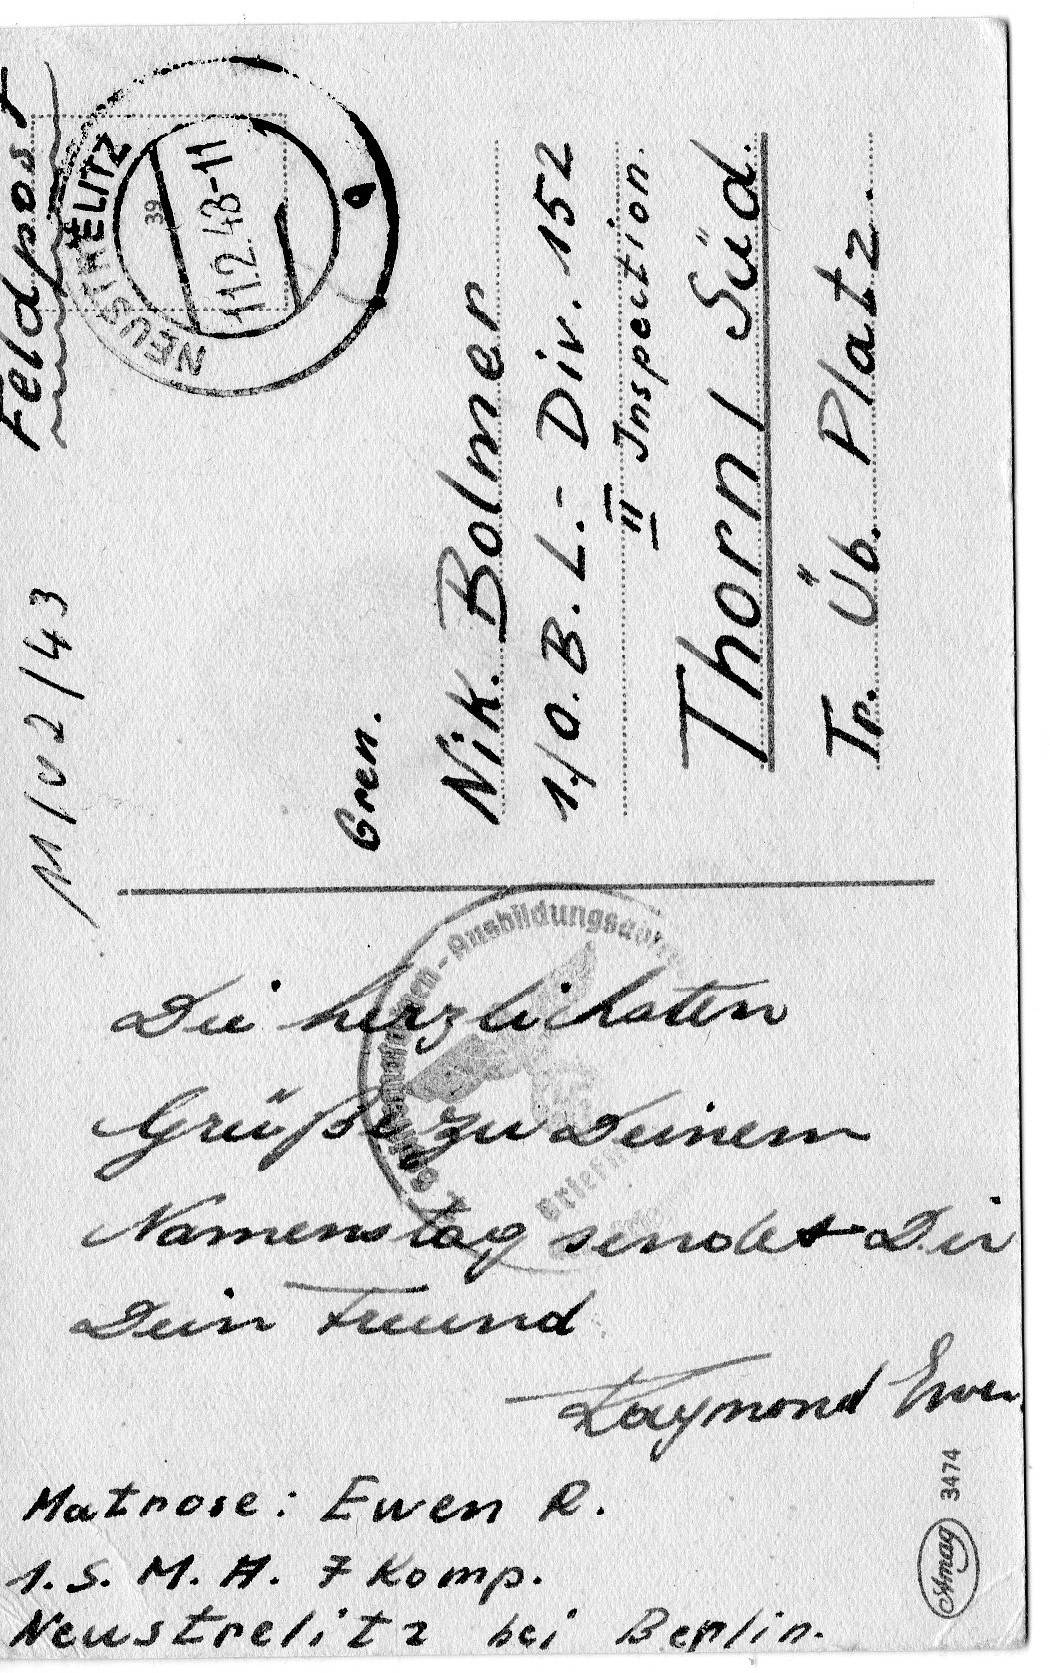 Feldpost
NEUSTRELITZ
39
11.2.43-11
a
11/02/43
Gren.
Nik. Bolmer
1./O.B.L.- Div. 152
II Inspection.
Thorn/Süd.
Tr. Üb. Platz.
-Ausbildungsabt
Die herzlichsten
Grüße zu Deinem
Namenstag sendet Dir
Dein Freund
Raymond Ewen
Matrose: Ewen R.
1. S. M. A. 7 Komp.
Neustrelitz bei Berlin.
Amag 3474